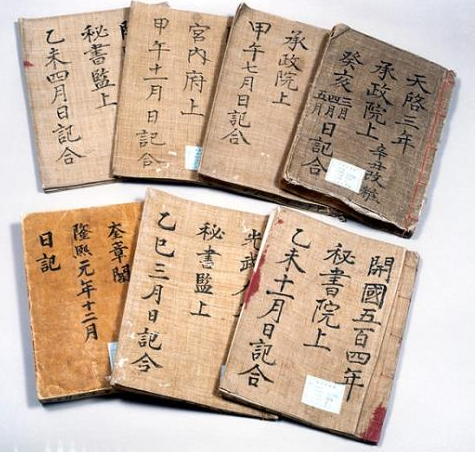 秘書監上
乙未四月日記合
宮內府上
甲午十一月日記合
承政院上
甲午七月日記合
天啓三年
承政院上 辛丑改粧
癸亥 三月 四月 五月 日記合
奎章閣
隆熙元年十二月
日記
光武
秘書監上
乙巳三月日記合
開國五百四年
秘書院上
乙未十一月日記合